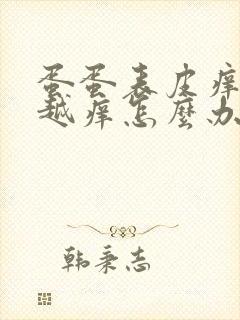 蛋蛋表皮痒
越痒怎麼办
韩秉志